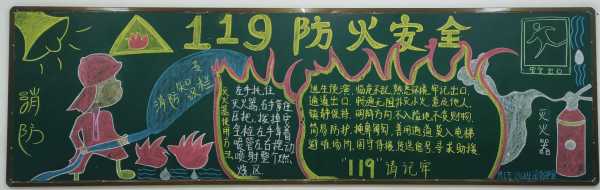 119防火安全
消防
消防知识
灭火器使用方法
左手托住
灭火器,右手握住
压把,拔掉
全栓,左手拿着
喷管左右摆动
喷射整个燃
烧区
逃生预演,临危不乱,熟悉环境,牢记出口,
通道出口,畅通无阻,扑灭小火,惠及他人,
镇静保持,明辨方向,不入险地,不贪财物,
简易防护,捂鼻匍匐,善用通道,莫入电梯
避难场所,固守待援,传送信号,寻求助援
"119"请记牢
安全出口
灭火器